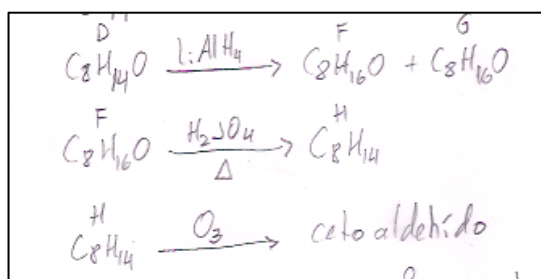 D F G
C8H14O LiAlH4 → C8H16O + C8H16O
F H
C8H16O H2SO4 Δ → C8H14
H
C8H14 O3 → ceto aldehído